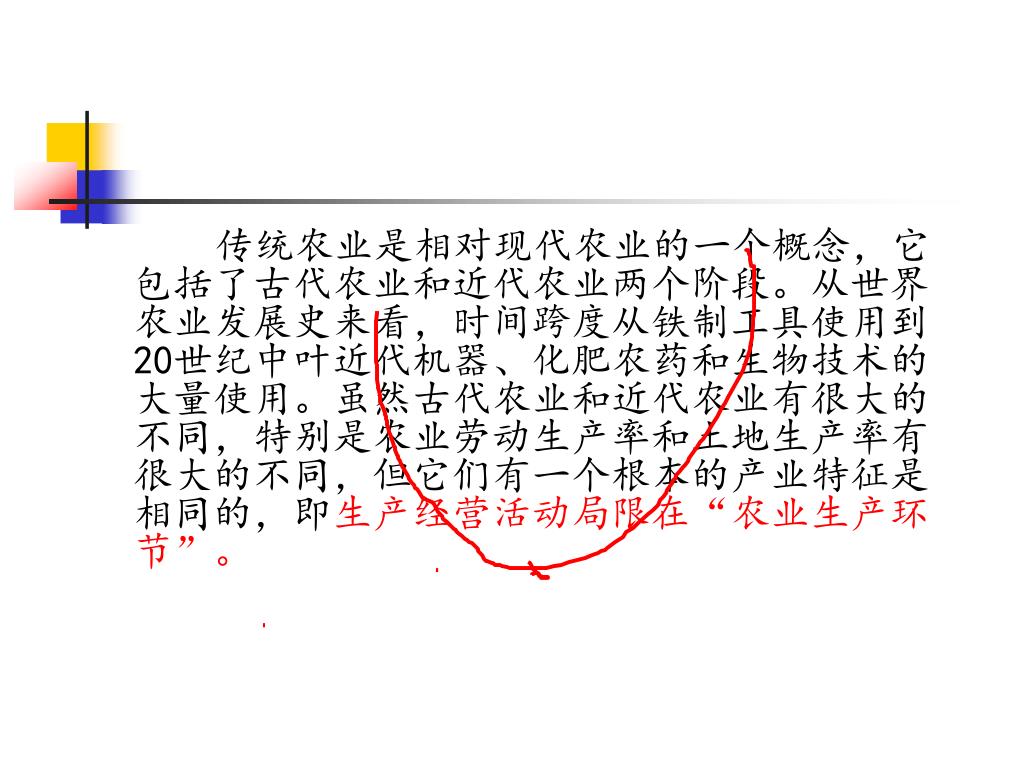 传统农业是相对现代农业的一个概念，它
包括了古代农业和近代农业两个阶段。从世界
农业发展史来看，时间跨度从铁制工具使用到
20世纪中叶近代机器、化肥农药和生物技术的
大量使用。虽然古代农业和近代农业有很大的
不同，特别是农业劳动生产率和土地生产率有
很大的不同，但它们有一个根本的产业特征是
相同的，即生产经营活动局限在“农业生产环
节”。